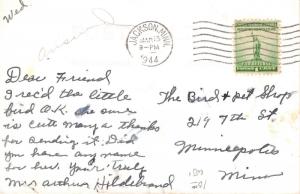 Wed
answered
JACKSON, MINN.
9-PM
1944
Dear Friend
I rec'd the little
bird O.K. he sure
is cute many a thanks
for sending it. Did
you have any name
for his Yours Truly
Mrs Arthur Hildebrand
The Bird & Pet Shop
219 7th St.
Minneapolis
Minn